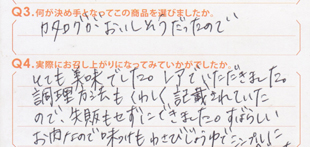 Q3.何が決め手となってこの商品を選びましたか。
カタログがおいしそうだったので
Q4.実際にお召し上がりになってみていかがでしたか。
とても美味でした。レアでいただきました。
調理方法もくわしく記載されていた
ので、失敗もせずにできました。すばらしい
お肉なので味つけもわさびじょうゆでシンプルに